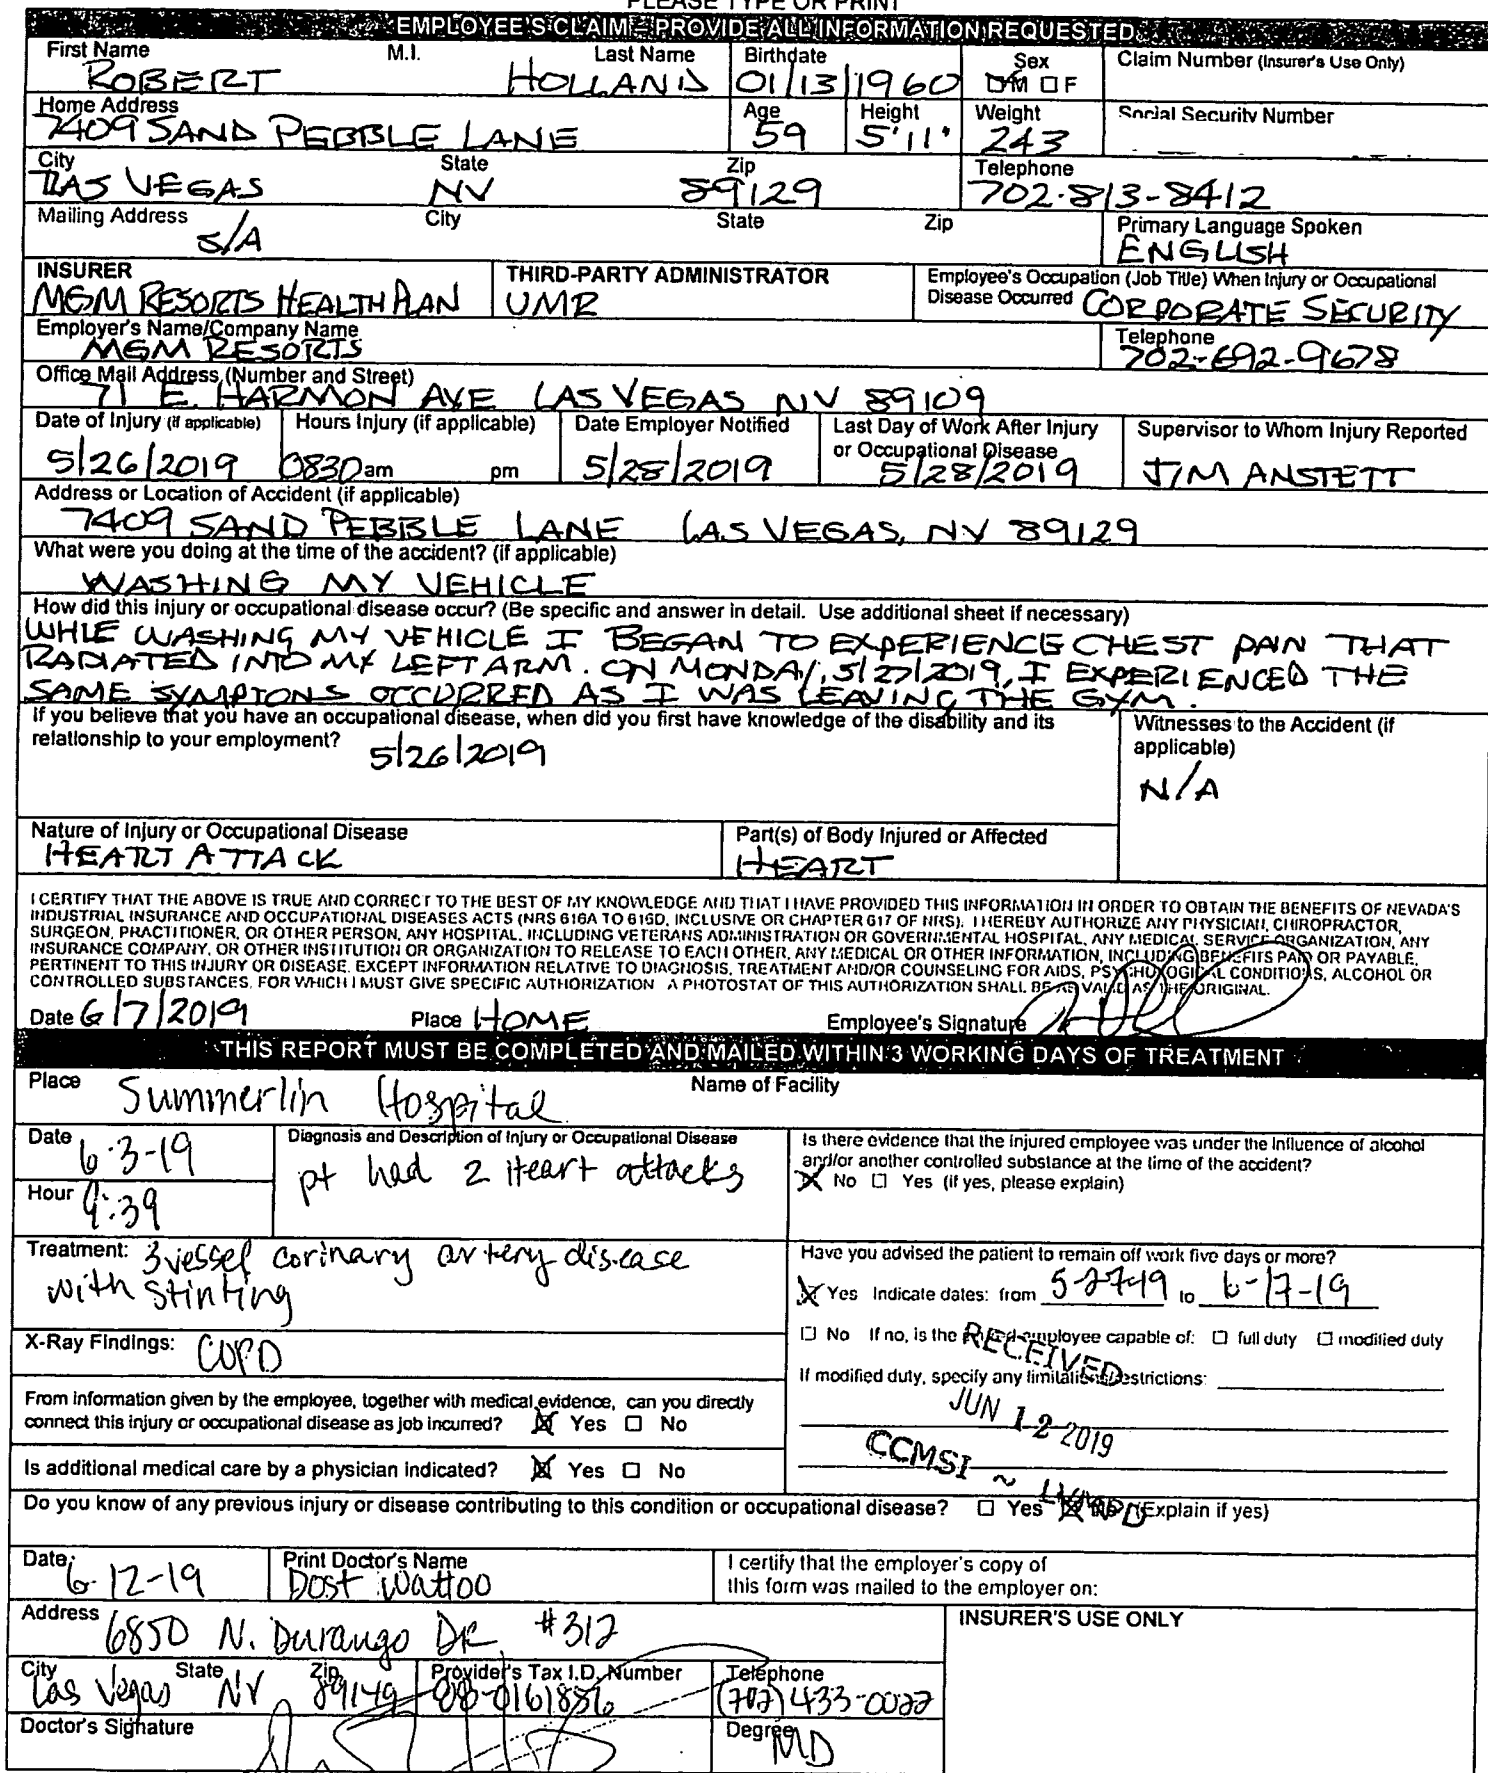 PLEASE TYPE OR PRINT
EMPLOYEE'S CLAIM – PROVIDE ALL INFORMATION REQUESTED
First Name M.I. Last Name Birthdate Sex Claim Number (Insurer's Use Only)
ROBERT HOLLAND 01/13/1960 M F
Home Address Age Height Weight Social Security Number
7409 SAND PEBBLE LANE 59 5'11" 243
City State Zip Telephone
LAS VEGAS NV 89129 702-813-8412
Mailing Address City State Zip Primary Language Spoken
S/A ENGLISH
INSURER THIRD-PARTY ADMINISTRATOR Employee's Occupation (Job Title) When Injury or Occupational
MGM RESORTS HEALTH PLAN UMR Disease Occurred CORPORATE SECURITY
Employer's Name/Company Name Telephone
MGM RESORTS 702-692-9678
Office Mail Address (Number and Street)
71 E. HARMON AVE LAS VEGAS NV 89109
Date of Injury (if applicable) Hours Injury (if applicable) Date Employer Notified Last Day of Work After Injury or Occupational Disease Supervisor to Whom Injury Reported
5/26/2019 0830 am pm 5/28/2019 5/28/2019 JIM ANSTETT
Address or Location of Accident (if applicable)
7409 SAND PEBBLE LANE LAS VEGAS, NV 89129
What were you doing at the time of the accident? (if applicable)
WASHING MY VEHICLE
How did this injury or occupational disease occur? (Be specific and answer in detail. Use additional sheet if necessary)
WHLE WASHING MY VEHICLE I BEGAN TO EXPERIENCE CHEST PAIN THAT
RADIATED INTO MY LEFT ARM. ON MONDAY, 5/27/2019, I EXPERIENCED THE
SAME SYMPTONS OCCURRED AS I WAS LEAVING THE GYM.
If you believe that you have an occupational disease, when did you first have knowledge of the disability and its
relationship to your employment? 5/26/2019
Witnesses to the Accident (if
applicable)
N/A
Nature of Injury or Occupational Disease Part(s) of Body Injured or Affected
HEART ATTACK HEART
I CERTIFY THAT THE ABOVE IS TRUE AND CORRECT TO THE BEST OF MY KNOWLEDGE AND THAT I HAVE PROVIDED THIS INFORMATION IN ORDER TO OBTAIN THE BENEFITS OF NEVADA'S
INDUSTRIAL INSURANCE AND OCCUPATIONAL DISEASES ACTS (NRS 616A TO 616D, INCLUSIVE OR CHAPTER 617 OF NRS). I HEREBY AUTHORIZE ANY PHYSICIAN, CHIROPRACTOR,
SURGEON, PRACTITIONER, OR OTHER PERSON, ANY HOSPITAL, INCLUDING VETERANS ADMINISTRATION OR GOVERNMENTAL HOSPITAL, ANY MEDICAL SERVICE ORGANIZATION, ANY
INSURANCE COMPANY, OR OTHER INSTITUTION OR ORGANIZATION TO RELEASE TO EACH OTHER, ANY MEDICAL OR OTHER INFORMATION, INCLUDING BENEFITS PAID OR PAYABLE,
PERTINENT TO THIS INJURY OR DISEASE, EXCEPT INFORMATION RELATIVE TO DIAGNOSIS, TREATMENT AND/OR COUNSELING FOR AIDS, PSYCHOLOGICAL CONDITIONS, ALCOHOL OR
CONTROLLED SUBSTANCES, FOR WHICH I MUST GIVE SPECIFIC AUTHORIZATION A PHOTOSTAT OF THIS AUTHORIZATION SHALL BE AS VALID AS THE ORIGINAL.
Date 6/7/2019 Place HOME Employee's Signature
THIS REPORT MUST BE COMPLETED AND MAILED WITHIN 3 WORKING DAYS OF TREATMENT
Place Summerlin Hospital Name of Facility
Date 6-3-19
Hour 9:39
Diagnosis and Description of Injury or Occupational Disease
pt had 2 Heart attacks
Is there evidence that the injured employee was under the influence of alcohol
and/or another controlled substance at the time of the accident?
No Yes (if yes, please explain)
Treatment: 3 vessel corinary artery disease
with stinting
Have you advised the patient to remain off work five days or more?
Yes Indicate dates: from 5-27-19 to 6-17-19
X-Ray Findings: COPD
No If no, is the injured employee capable of: full duty modified duty
If modified duty, specify any limitations/restrictions:
RECEIVED
JUN 12 2019
CCMSI ~
From information given by the employee, together with medical evidence, can you directly
connect this injury or occupational disease as job incurred? Yes No
Is additional medical care by a physician indicated? Yes No
Do you know of any previous injury or disease contributing to this condition or occupational disease? Yes No (Explain if yes)
Date: 6-12-19 Print Doctor's Name Dost Wattoo
I certify that the employer's copy of
this form was mailed to the employer on:
Address 6850 N. Durango DR #312 INSURER'S USE ONLY
City State Zip Provider's Tax I.D. Number Telephone
Las Vegas NV 89149 88-0161886 (702) 433-0022
Doctor's Signature Degree MD